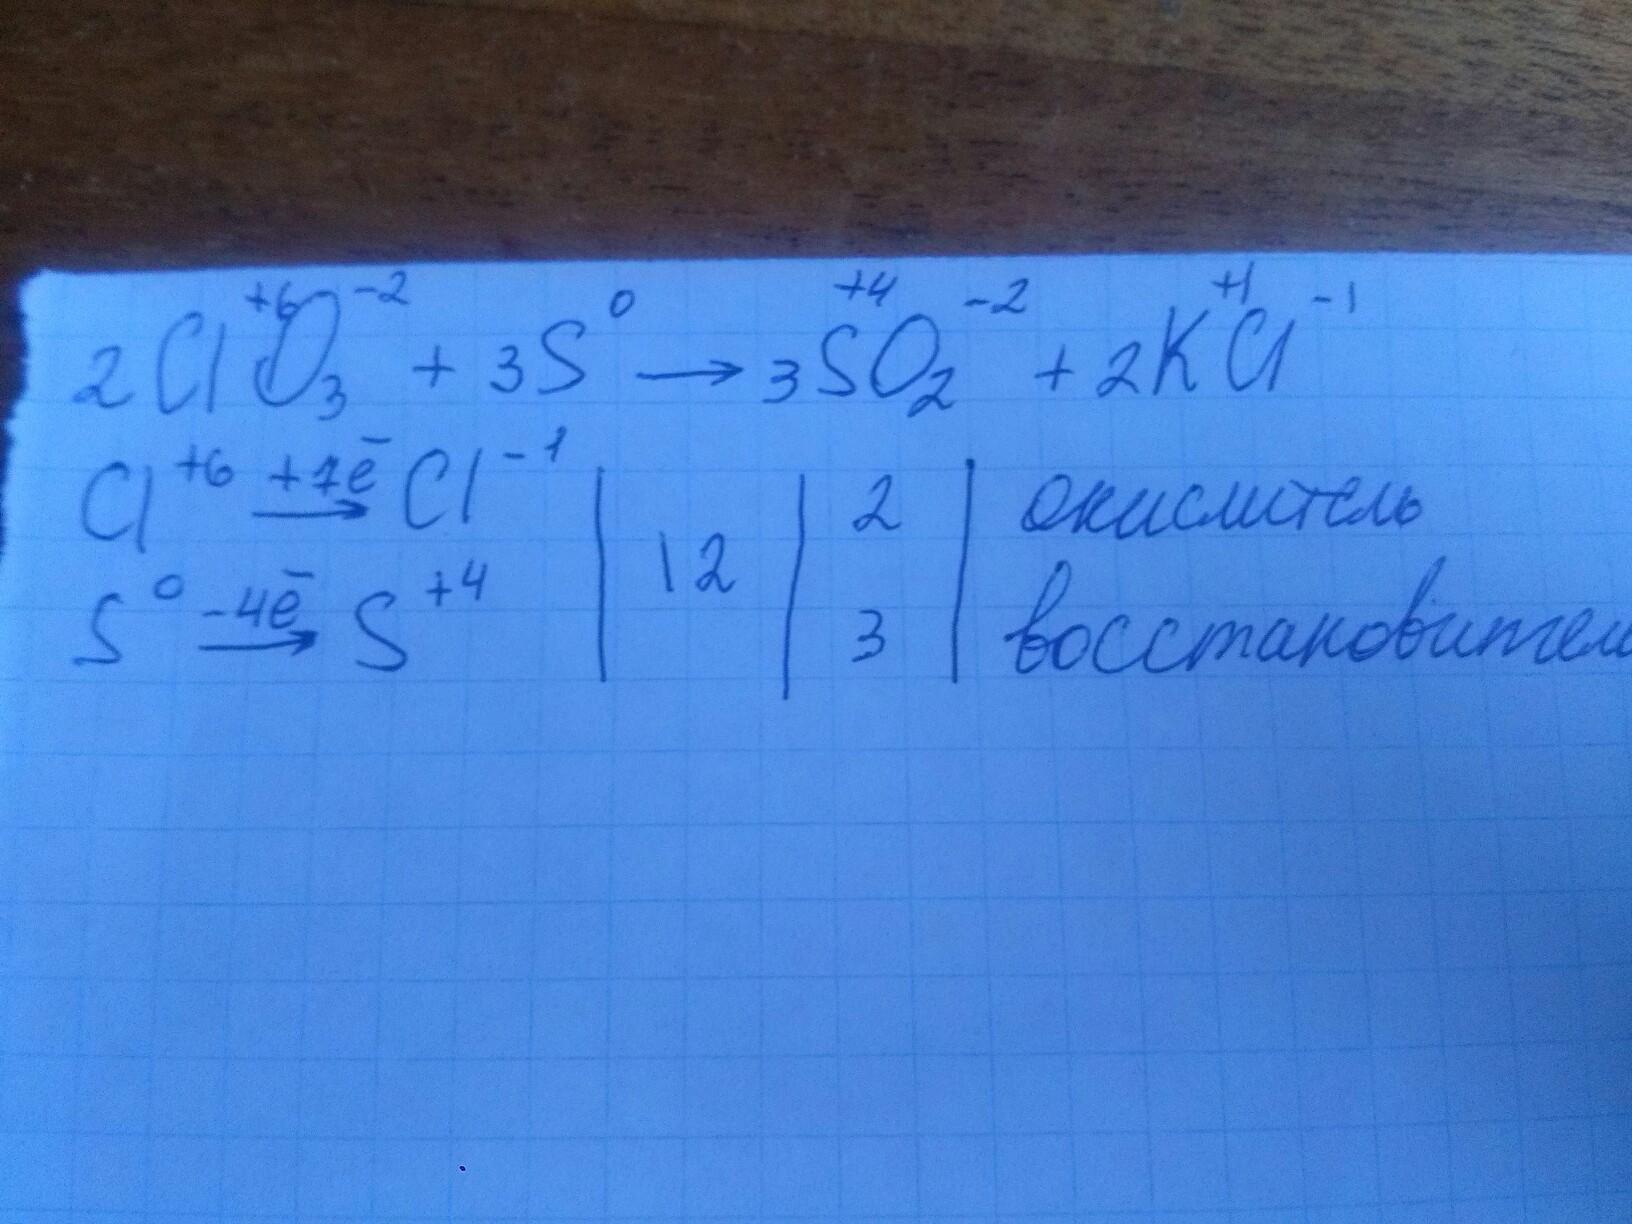 2Cl⁺⁶O₃⁻² + 3S⁰ → 3S⁺⁴O₂⁻² + 2K⁺¹Cl⁻¹
Cl⁺⁶ +7ē → Cl⁻¹ | 12 | 2 | окислитель
S⁰ -4ē → S⁺⁴ | 3 | восстановител